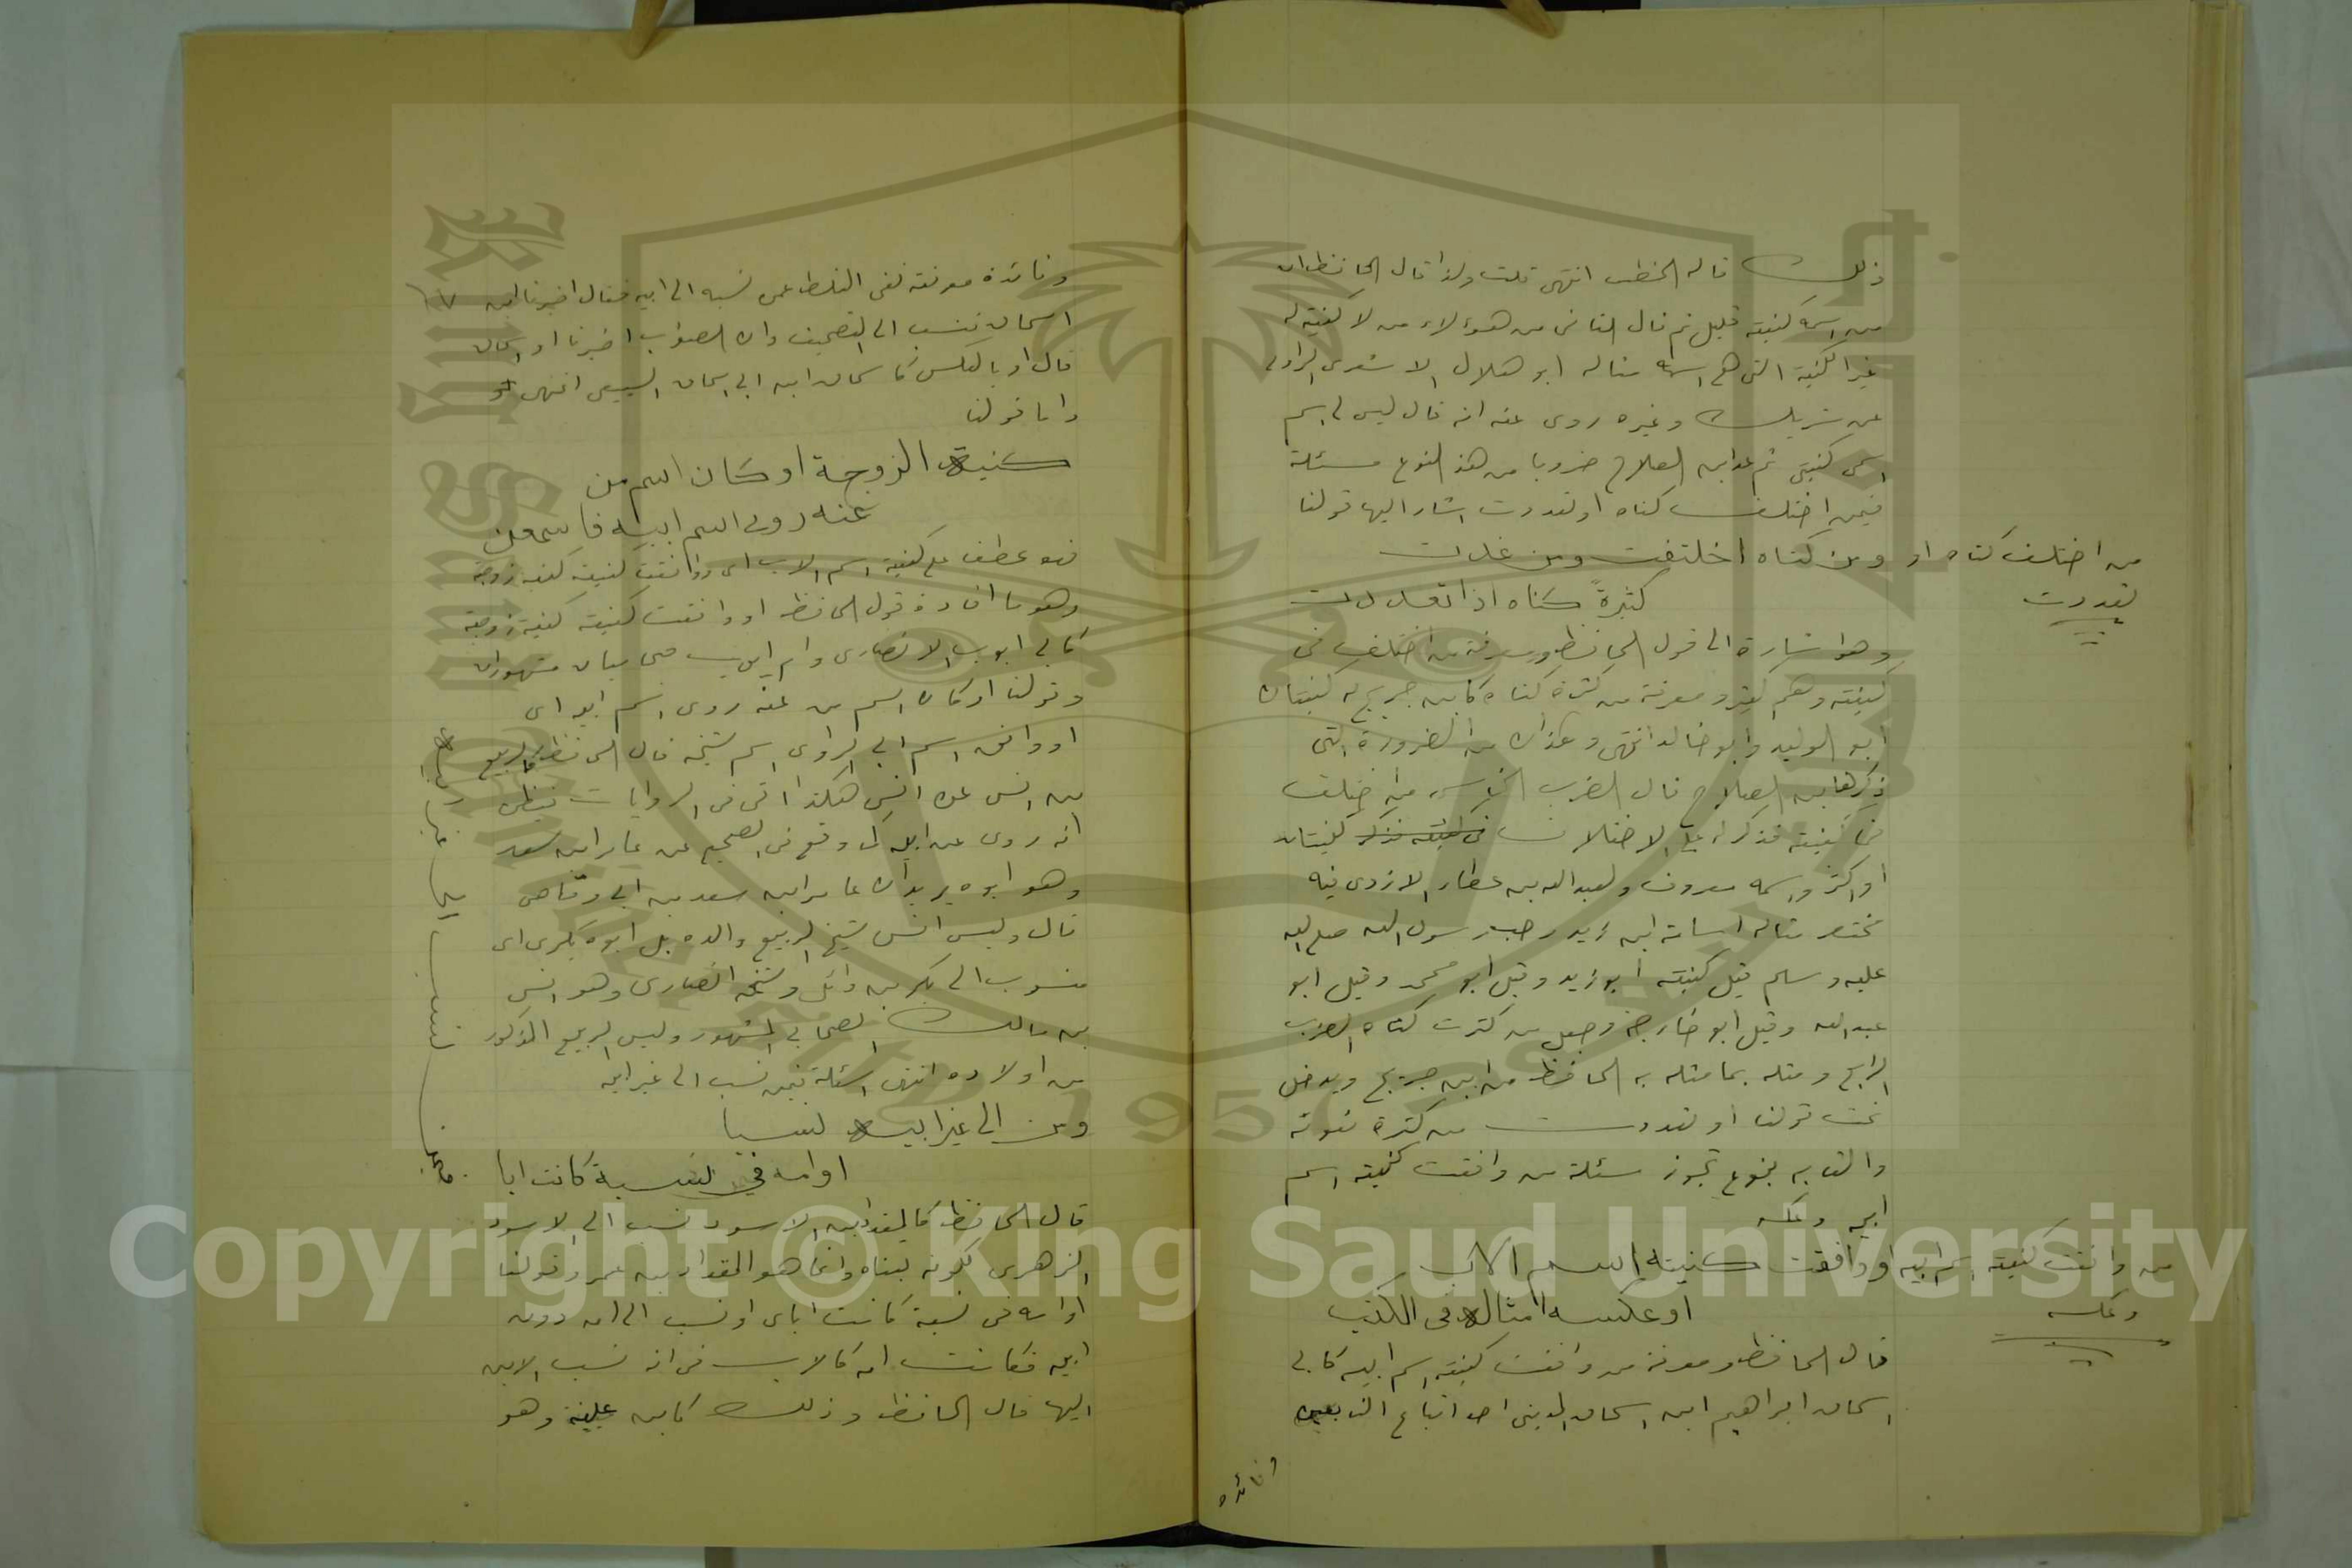 ذلك قاله الخطيب انتهى قلت ولذا قال الحافظ ان
من اسمه كنيته قليل ثم قال الثاني من هؤلاء من لا كنية له
غير الكنية التي هي اسمه مثاله ابو هلال الاشعري الراوي
عن شريك وغيره روى عنه انه قال ليس لي اسم
اسمي كنيتي ثم عد ابن الصلاح ضروبا من هذا النوع مسئلة
فيمن اختلف كناه او تعددت اشار اليها قولنا
من اختلف كناه او
تعددت
ومن كناه اختلفت ومن غدت
كثيرةً كناه اذا تعددت
وهو اشارة الى قول الحافظ ومعرفة من اختلف في
كنيته وهم كثير ومعرفة من كثرة كناه كابن جريج له كنيتان
ابو الوليد وابو خالد انتهى وهذان من الضرورة التي
ذكرها ابن الصلاح قال الضرب الخامس من اختلف
في كنيته فذكر له على الاختلاف كنيتان
او اكثر واسمه معروف ولعبد الله بن عطار الازدي فيه
مختصر مثاله اسامة ابن زيد حب رسول الله صلى الله
عليه وسلم قيل كنيته ابو زيد وقيل ابو محمد وقيل ابو
عبد الله وقيل ابو خارجة وجعل من كثرت كناه الضرب
الرابع ومثله بما مثله به الحافظ من ابن جريج ويدخل
تحت قولنا او تعددت من كثرة نعوته
والقابه بنوع تجوز مسئلة من وافقت كنيته اسم
ابيه وعكسه
من وافقت كنيته اسم ابيه
وعكسه
او وافقت كنيته اسم الاب
او عكسه امثاله في الكتب
قال الحافظ ومعرفة من وافقت كنيته اسم ابيه كابي
اسحاق ابراهيم ابن اسحاق المديني احد اتباع التابعين
وفائدة
وفائدة معرفته نفي الغلط عمن نسبه الى ابيه فقال اخبرنا ابن
اسحاق فنسب الى التصحيف وان الصواب اخبرنا ابو اسحاق
قال او بالعكس كاسحاق ابن ابي اسحاق السبيعي انتهى
واما قولنا
كنيته الزوجة او كان اسم من
عنه روى اسم ابيه فاسمعن
فهو عطف على كنية اسم الاب اي ووافقت كنيته كنية زوجته
وهو ما افاده قول الحافظ او وافقت كنيته كنية زوجته
كابي ايوب الانصاري وام ايوب صحابيان مشهوران
وقولنا او كان اسم من عنه روى اسم ابيه اي
او وافق اسم ابي الراوي اسم شيخه قال الحافظ كالربيع
بن انس عن انس هكذا اتى في الروايات فيظن
انه روى عن ابيه كما وقع في الصحيح عن عامر ابن سعد
وهو ابوه يريد ان عامر ابن سعد بن ابي وقاص
قال وليس انس شيخ الربيع والده بل ابوه بكري اي
منسوب الى بكر بن وائل وشيخه انصاري وهو انس
بن مالك الصحابي المشهور وليس الربيع المذكور
من اولاده انتهى اسئلة فيمن نسب الى غير ابيه
ومن الى غير ابيه نسبا
او امه في نسبة كانت ابا
قال الحافظ كالمقداد بن الاسود نسب الى الاسود
الزهري لكونه تبناه وانما هو المقداد بن عمرو وقولنا
او امه في نسبة كانت ابا اي او نسب الى امه دون
ابيه فكانت امه كالاب في انه نسب الابن
اليها قال الحافظ وذلك كابن علية وهو